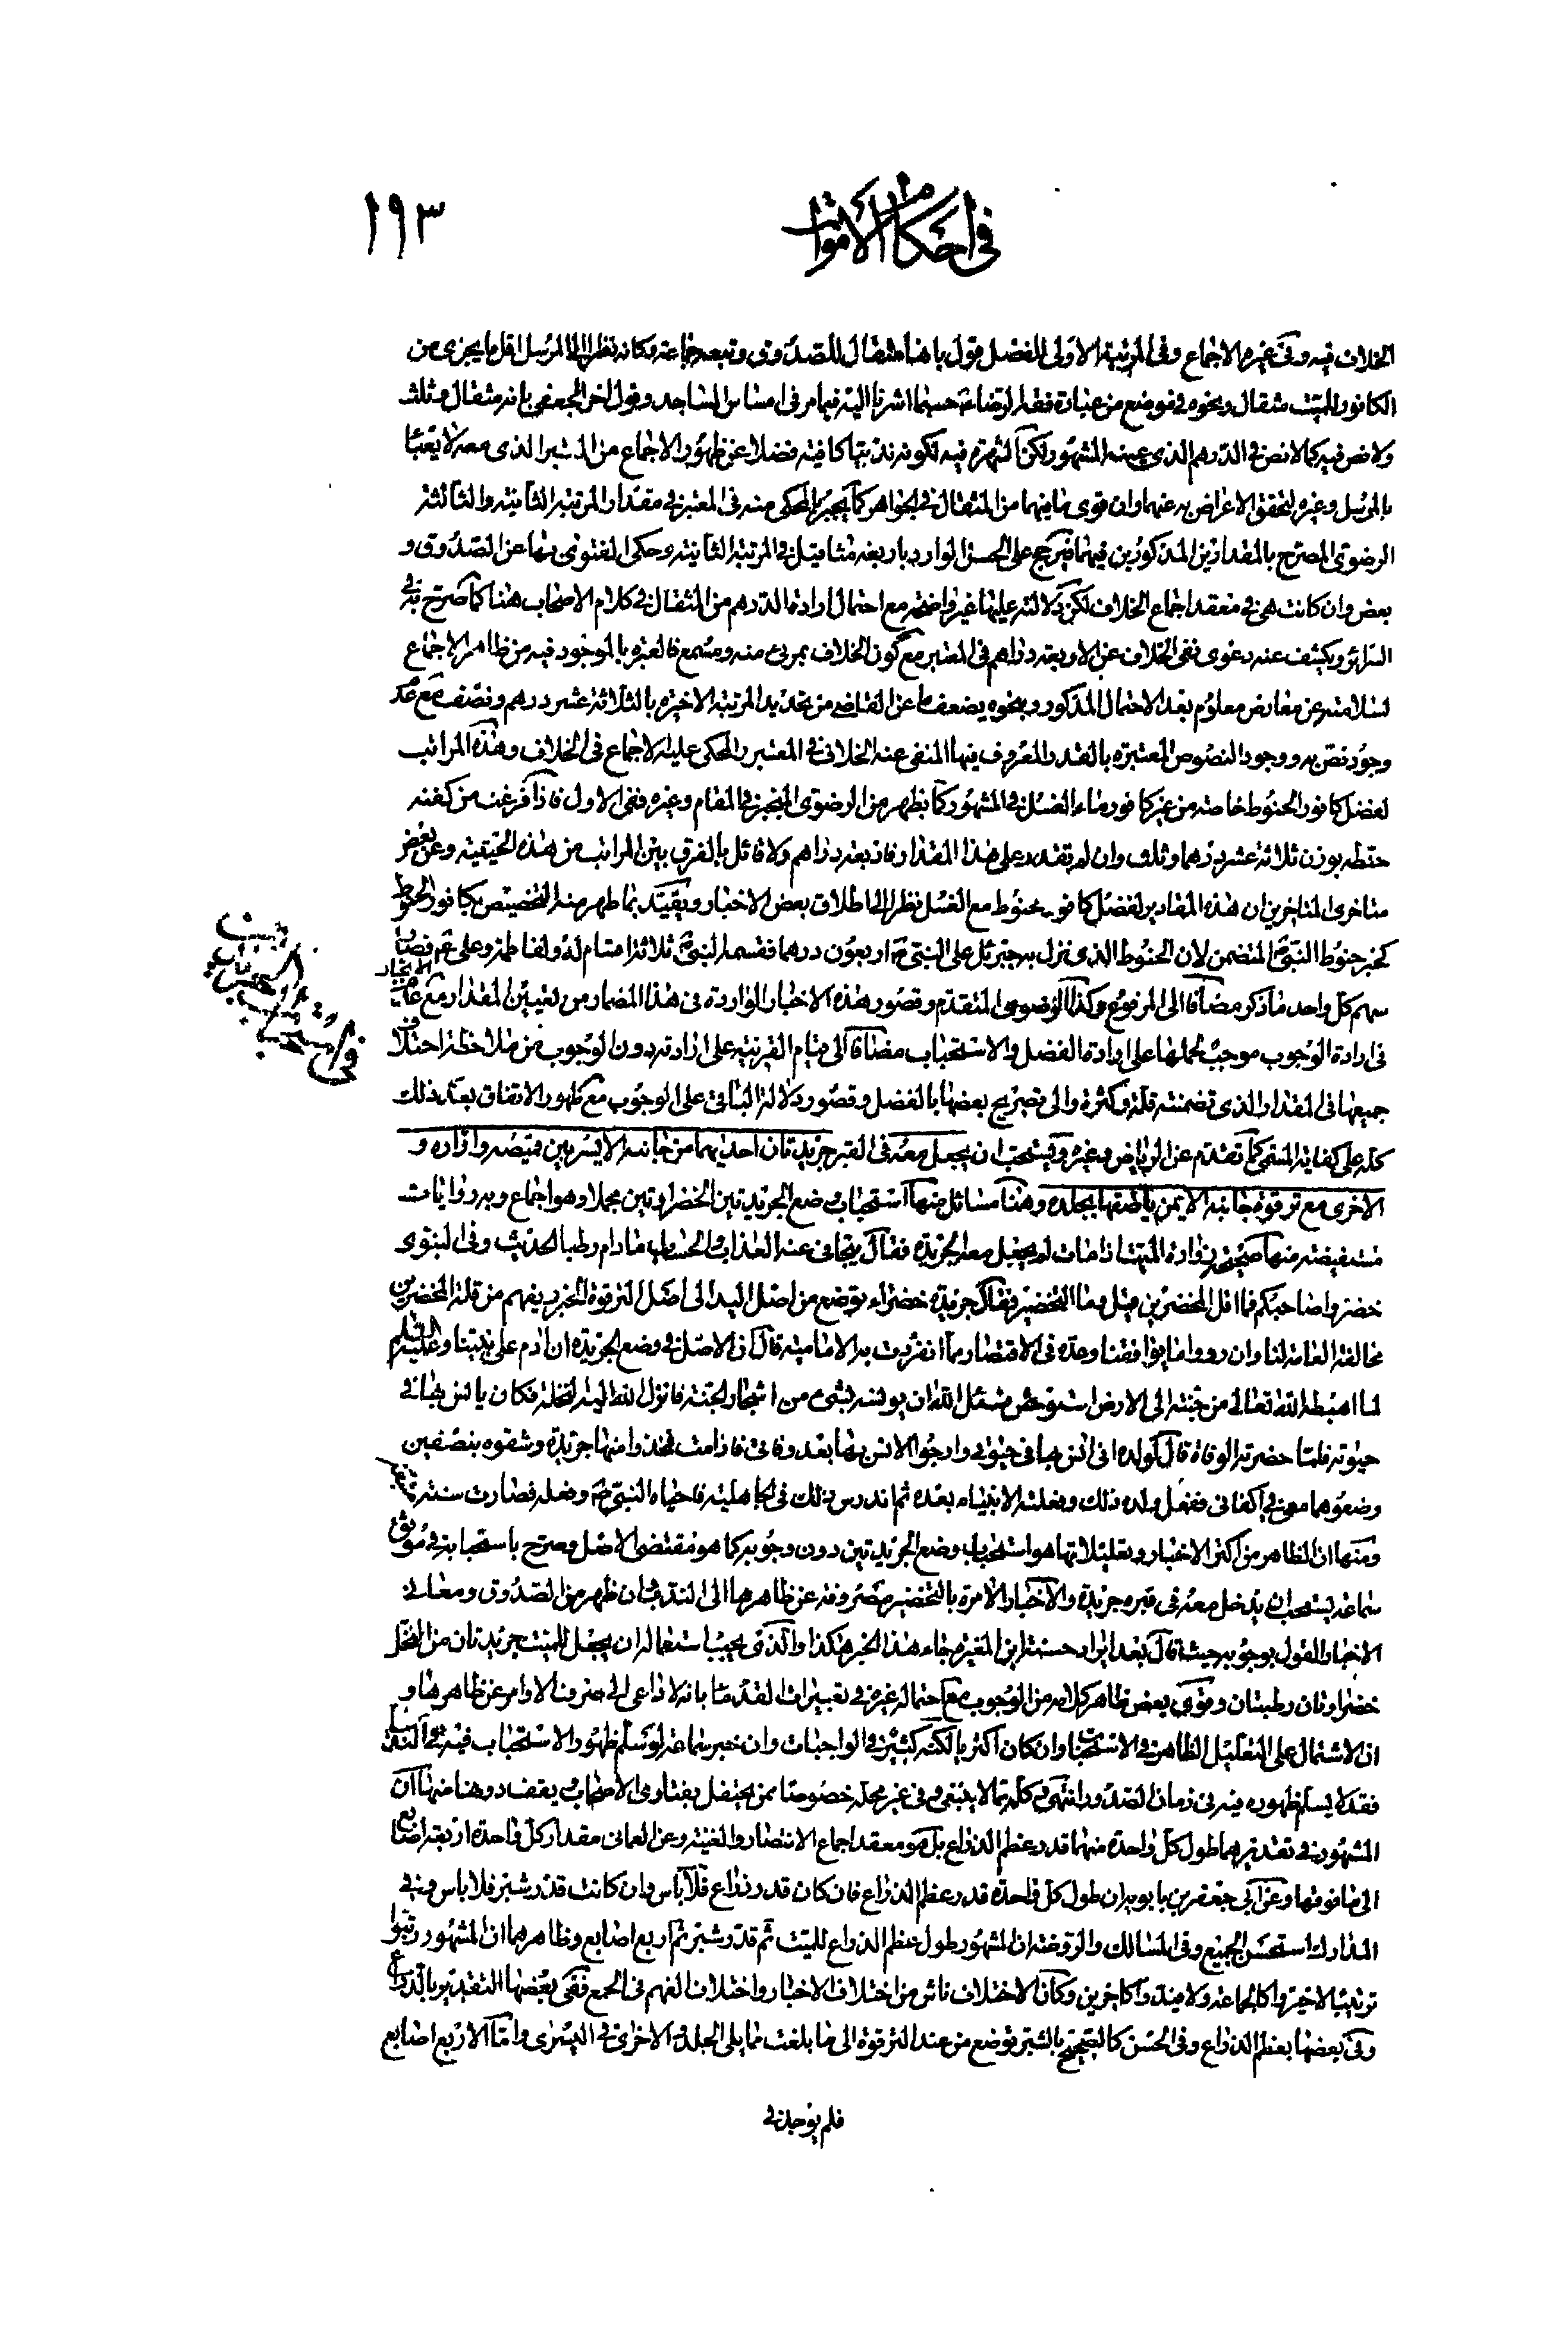 في احكام الأموات
١٩٣
الخلاف فيه وفي غيره الاجماع وفي المرتبة الاولى للفضل قول بانها مثقال للصدوق وتبعه جماعة وكانه نظر الى المرسل اقل ما يجزى من
الكافور للميت مثقال ونحوه في موضع من عبارة فقه الرضا ع حسبما اشرنا اليه فيما مر في امساس المساجد وقول اخر للجعفي بانه مثقال وثلث
ولا نص فيه كما لا نص في الدرهم الذى عينه المشهور لكن الشهرة فيه لكونه ندبيا كافية فضلا عن ظهور الاجماع من المعتبر الذى معه لا يعبأ
بالمرسل وغيره لتحقق الاعراض به عنهما وان قوى ما فيهما من المثقال في الجواهر كما يجبر المحكى منه في المعتبر في مقدار المرتبة الثانية والثالثة
الرضوى المصرح بالمقدارين المذكورين فيهما فيرجح على الحسن الوارد باربعة مثاقيل في المرتبة الثانية وحكى الفتوى بها عن الصدوق و
بعض وان كانت هى في معقد اجماع الخلاف لكن دلالته عليها غير واضحة مع احتمال ارادة الدرهم من المثقال في كلام الاصحاب هنا كما صرح به في
السرائر ويكشف عنه دعوى نفى الخلاف عن الاربعة دراهم في المعتبر مع كون الخلاف بمرئ منه ومسمع فالعبرة بالموجود فيه من ظاهر الاجماع
لسلامته عن معارض معلوم بعد الاحتمال المذكور وبنحوه يضعف ما عن القاضى من تحديد المرتبة الاخيرة بالثلاثة عشر درهم ونصف مع عدم
وجود نص به ووجود النصوص المعتبرة بالقدر المعروف فيها المنفى عنه الخلاف في المعتبر والمحكى عليه الاجماع في الخلاف وهذه المراتب
لفضل كافور الحنوط خاصة من غير كافور ماء الغسل في المشهور كما يظهر من الرضوى المنجبر في المقام وغيره ففى الاول فاذا فرغت من كفنه
حنطه بوزن ثلاثة عشر درهما وثلث وان لم تقدر على هذا المقدار فاربعة دراهم ولا قائل بالفرق بين المراتب من هذه الحيثية وعن بعض
متاخرى المتاخرين ان هذه المقادير لفضل كافور حنوط مع الغسل نظرا الى اطلاق بعض الاخبار ويقيد بما ظهر منه التخصيص بكافور الحنوط
كخبر حنوط النبي ص المتضمن لان الحنوط الذى نزل به جبرئيل على النبي ص اربعون درهما فقسمه النبي ص ثلاثة اقسام له ولفاطمة وعلى ع فصار
سهم كل واحد ما ذكر مضافا الى المرفوع وكذا الرضوى المتقدم وقصور هذه الاخبار الواردة في هذا المضمار من تعيين المقدار مع
في ارادة الوجوب موجب لحملها على ارادة الفضل والاستحباب مضافا الى قيام القرينة على ارادته دون الوجوب من ملاحظة اختلاف
جميعها في المقدار الذى تضمنته قلة وكثرة والى تصريح بعضها بالفضل وقصور دلالة الباقى على الوجوب مع ظهور الاتفاق بعد ذلك
كله على كفاية المسمى كما تقدم عن الرياض وغيره ويستحب ان يجعل معه في القبر جريدتان احديهما من جانبه الايسر بين قميصه وازاره و
الاخرى مع ترقوة جانبه الايمن يلصقها بجلده وهنا مسائل منها استحباب وضع الجريدتين الخضراوتين مجملا وهو اجماع وبه روايات
مستفيضة منها صحيحة زرارة الميت اذا مات لم يجعل معه الجريدة فقال يتجافى عنه العذاب والحساب مادام رطبا الحديث وفي النبوى
خضروا صاحبكم فما اقل المخضرين قيل وما التخضير فقال جريدة خضراء توضع من اصل اليد الى اصل الترقوة الخبر يفهم من قلة المخضرين
مخالفة العامة لنا وان رووا ما يوافقنا وعده في الاقتصار مما انفردت به الامامية قال ان الاصل في وضع الجريدة ان ادم على نبينا وعليه السلم
لما اهبطه الله تعالى من جنته الى الارض استوحش فسئل الله ان يونسه بشئ من اشجار الجنة فانزل الله اليه النخلة فكان يانس بها في
حيوته فلما حضرته الوفاة قال لولده انى انس بها في حيوتى وارجو الانس بها بعد وفاتى فاذا مت فخذوا منها جريدة وشقوه بنصفين
وضعوهما معى في اكفانى ففعل ولده ذلك وفعلته الانبياء بعده ثم اندرس ذلك في الجاهلية فاحياه النبي ص وفعله فصارت سنة متبعة
ومنها ان الظاهر من اكثر الاخبار وتعليلاتها هو استحباب وضع الجريدتين دون وجوبه كما هو مقتضى الاصل وصرح باستحبابه في موثق
سماعة يستحب ان يدخل معه في قبره جريدة والاخبار الامرة بالتخضير مصروفة عن ظاهرها الى الندب وان ظهر من الصدوق ومعانى
الاخبار القول بوجوبه حيث قال بعد ايراد حسنة ابن المغيرة جاء هذا الخبر هكذا والذى يجب استعماله ان يجعل للميت جريدتان من النخل
خضراوتان رطبتان وقوى بعض ظاهر كلامه من الوجوب مع احتماله غيره في تعبيرات القدما بانه لا داعى الى صرف الاوامر عن ظاهرها و
ان الاشتمال على التعليل الظاهر في الاستحباب وان كان اكثر بالكنه كثير في الواجبات وان خبر سماعة لو سلم ظهور الاستحباب فيه في السنة الناس
فقد لا يسلم ظهوره فيه في زمان الصدور انتهى وكله مما لا ينبغى وفي غير محله خصوصا ممن يحتفل بفتاوى الاصحاب ويقف دونها ومنها ان
المشهور في تقديرهما طول كل واحدة منهما قدر عظم الذراع بل هو معقد اجماع الانتصار والغنية وعن العمانى مقدار كل واحدة اربعة اصابع
الى ما فوقها وعن ابى جعفر بن بابويه ان طول كل واحدة قدر عظم الذراع فان كان قدر ذراع فلا باس وان كانت قدر شبر فلا باس وفي
المدارك استحسن الجميع وفي المسالك والروضة ان المشهور طول عظم الذراع للميت ثم قدر شبر ثم اربع اصابع وظاهرهما ان المشهور رتبوا
ترتيب الاخيرة كالجماعة ولا ميت وآكاخرين وكأن الاختلاف ناش من اختلاف الاخبار واختلاف الفهم في الجمع ففى بعضها التقدير بالذراع
وفي بعضها بعظم الذراع وفي الحسن كالصحيح بالشبر توضع من عند الترقوة الى ما بلغت مما يلى الجلد والاخرى في اليسرى واما الاربع اصابع
فلم يوجد في